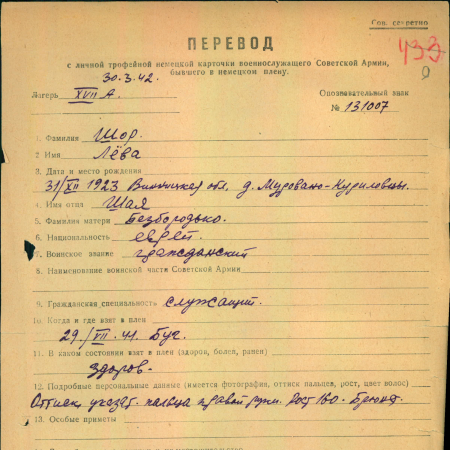 Сов. секретно
ПЕРЕВОД
433
с личной трофейной немецкой карточки военнослужащего Советской Армии,
бывшего в немецком плену.
30.3.42.
Лагерь XVII А.
Опознавательный знак
№ 131007
1. Фамилия Шор.
2. Имя Лёва
3. Дата и место рождения
31/XII 1923 Винницкая обл, д. Муровано-Куриловцы.
4. Имя отца Шая
5. Фамилия матери Безбородько.
6. Национальность еврей.
7. Воинское звание гражданский
8. Наименование воинской части Советской Армии
9. Гражданская специальность служащий.
10. Когда и где взят в плен
29./VII. 41. Буг.
11. В каком состоянии взят в плен (здоров, болен, ранен)
здоров.
12. Подробные персональные данные (имеется фотография, оттиск пальцев, рост, цвет волос)
Оттиск указат. пальца правой руки. Рост 160. Брюнет.
13. Особые приметы